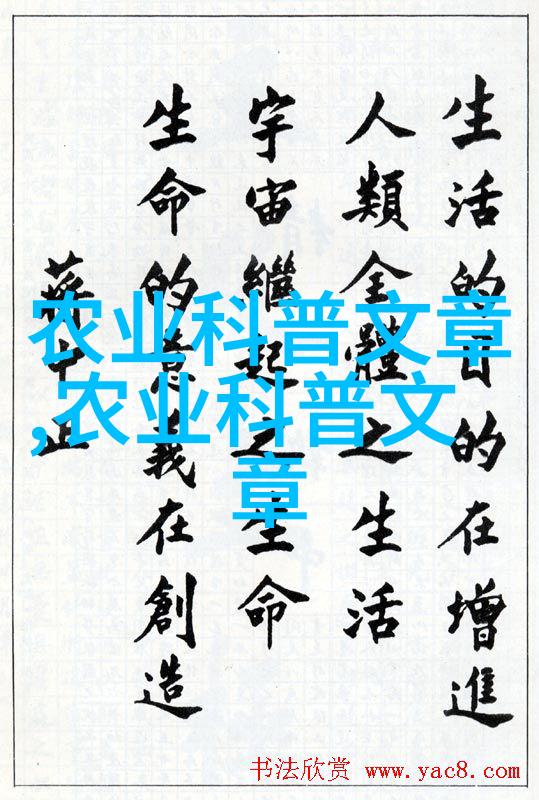 生活的目的在增進
人類全體之生活
宇宙繼起之生命
生命的意義在創造
蔣中正
农业科普文章
,农业科普文
章
书法欣赏 www.yac8.com